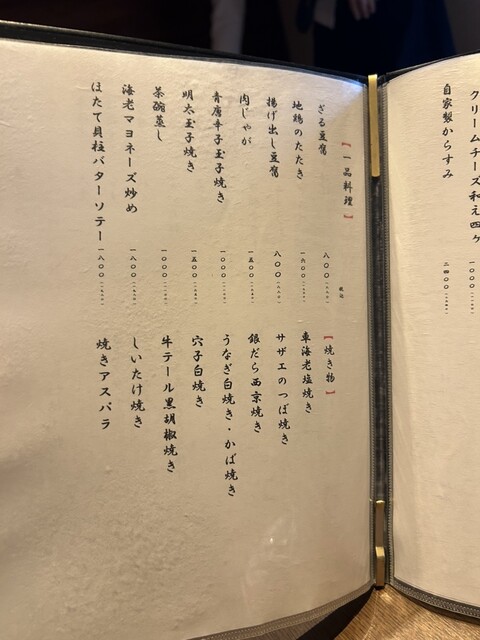 クリームチーズ和え四ヶ
一〇〇〇
自家製からすみ
二四〇〇
【一品料理】
税込
ざる豆腐
八〇〇(八八〇)
地鶏のたたき
一六〇〇
揚げ出し豆腐
八〇〇(八八〇)
肉じゃが
一五〇〇
青唐辛子玉子焼き
一〇〇〇
明太玉子焼き
一五〇〇
茶碗蒸し
一〇〇〇
海老マヨネーズ炒め
一八〇〇
ほたて貝柱バターソテー
一八〇〇
【焼き物】
車海老塩焼き
サザエのつぼ焼き
銀だら西京焼き
うなぎ白焼き・かば焼き
穴子白焼き
牛テール黒胡椒焼き
しいたけ焼き
焼きアスパラ